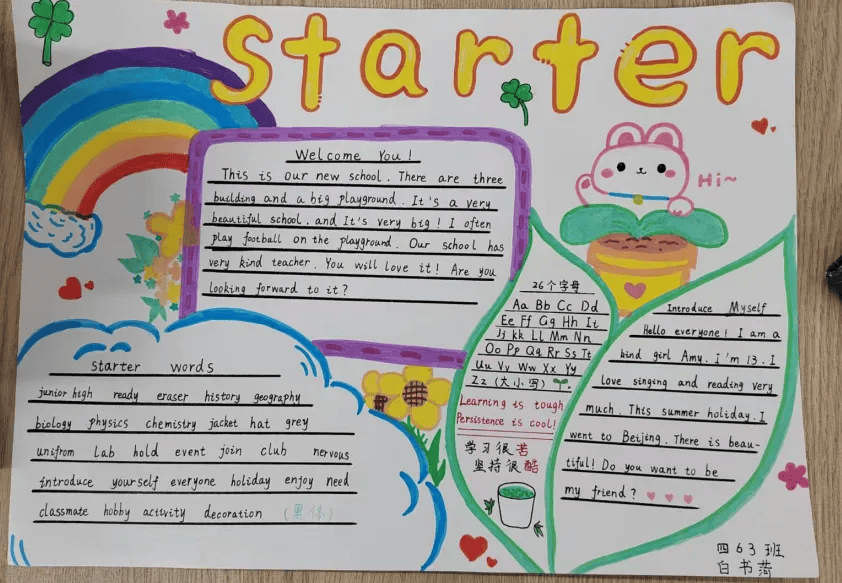 Starter
Welcome You!
This is our new school. There are three
building and a big playground. It's a very
beautiful school, and It's very big! I often
play football on the playground. Our school has
very kind teacher. You will love it! Are you
looking forward to it?
Hi~
starter words
junior high ready eraser history geography
biology physics chemistry jacket hat grey
unifrom Lab hold event join club nervous
introduce yourself everyone holiday enjoy need
classmate hobby activity decoration (黑体)
26个字母
Aa Bb Cc Dd
Ee Ff Gg Hh Ii
Jj kk LL Mm Nn
Oo Pp Qq Rr Ss Tt
Uu Vv Ww Xx Yy
Zz (大小写)
Learning is tough
Persistence is cool!
学习很苦
坚持很酷
Introduce Myself
Hello everyone! I am a
kind girl Amy. i'm 13. I
love singing and reading very
much. This summer holiday. I
went to Beijing. There is beau-
tiful! Do you want to be
my friend?
四63班
白书菏